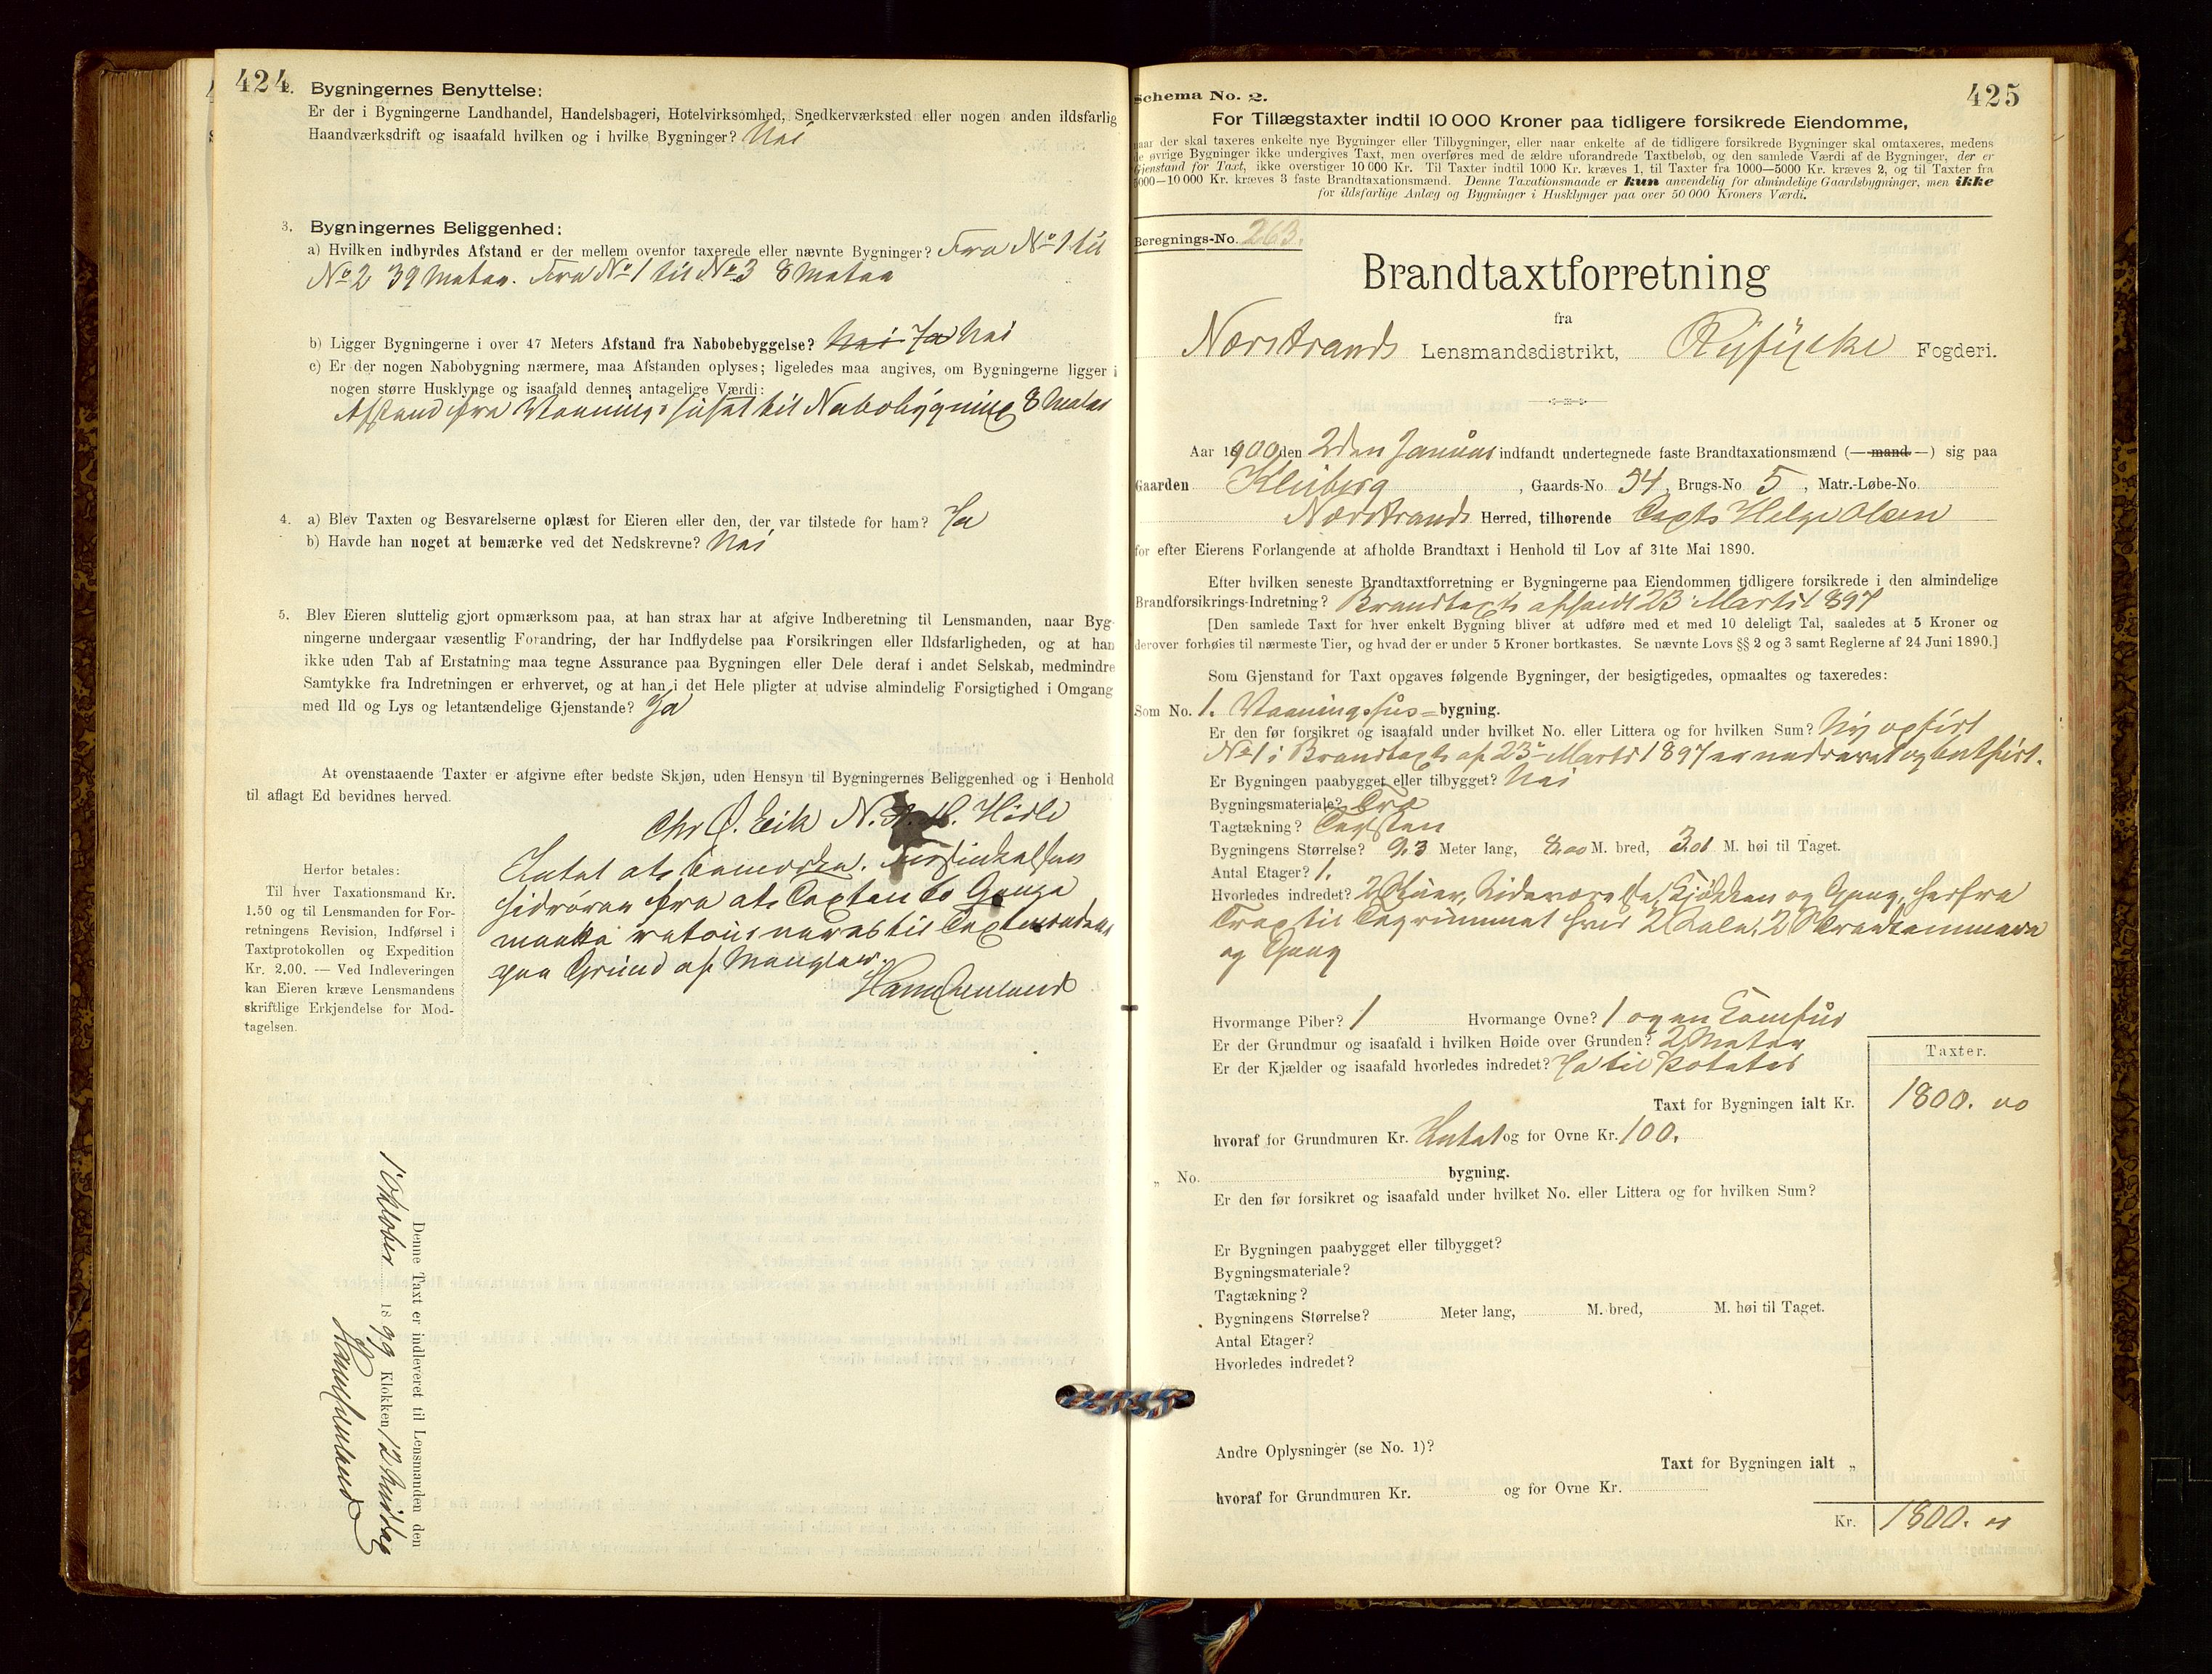 424
2. Bygningernes Benyttelse:
Er der i Bygningerne Landhandel, Handelsbageri, Hotelvirksomhed, Snedkerværksted eller nogen anden ildsfarlig
Haandværksdrift og isaafald hvilken og i hvilke Bygninger? Nei
3. Bygningernes Beliggenhed:
a) Hvilken indbyrdes Afstand er der mellem ovenfor taxerede eller nævnte Bygninger? Fra No 1 til
No 2 39 Meter. Fra No 1 til No 3 8 Meter
b) Ligger Bygningerne i over 47 Meters Afstand fra Nabobebyggelse? Nei Ja Nei
c) Er der nogen Nabobygning nærmere, maa Afstanden oplyses; ligeledes maa angives, om Bygningerne ligger i
nogen større Husklynge og isaafald dennes antagelige Værdi:
Afstand fra Vaaningshuset til Nabobygning 8 Meter
4. a) Blev Taxten og Besvarelserne oplæst for Eieren eller den, der var tilstede for ham? Ja
b) Havde han noget at bemærke ved det Nedskrevne? Nei
5. Blev Eieren sluttelig gjort opmærksom paa, at han strax har at afgive Indberetning til Lensmanden, naar Byg-
ningerne undergaar væsentlig Forandring, der har Indflydelse paa Forsikringen eller Ildsfarligheden, og at han
ikke uden Tab af Erstatning maa tegne Assurance paa Bygningen eller Dele deraf i andet Selskab, medmindre
Samtykke fra Indretningen er erhvervet, og at han i det Hele pligter at udvise almindelig Forsigtighed i Omgang
med Ild og Lys og letantændelige Gjenstande? Ja
At ovenstaaende Taxter er afgivne efter bedste Skjøn, uden Hensyn til Bygningernes Beliggenhed og i Henhold
til aflagt Ed bevidnes herved.
Chr Ø. Eik N. Hidle
Intet at bemærke.
hidrører fra at Taxten to Gange
maatte returneres til Taxtmændene
paa Grund af Mangler.
Herfor betales:
Til hver Taxationsmand Kr.
1.50 og til Lensmanden for For-
retningens Revision, Indførsel i
Taxtprotokollen og Expedition
Kr. 2.00. — Ved Indleveringen
kan Eieren kræve Lensmandens
skriftlige Erkjendelse for Mod-
tagelsen.
Denne Taxt er indleveret til Lensmanden den
1 Oktober 1899 Klokken 12 Middag
425
Schema No. 2.
For Tillægstaxter indtil 10 000 Kroner paa tidligere forsikrede Eiendomme,
naar der skal taxeres enkelte nye Bygninger eller Tilbygninger, eller naar enkelte af de tidligere forsikrede Bygninger skal omtaxeres, medens
de øvrige Bygninger ikke undergives Taxt, men overføres med de ældre uforandrede Taxtbeløb, og den samlede Værdi af de Bygninger, der er
Gjenstand for Taxt, ikke overstiger 10 000 Kr. Til Taxter indtil 1000 Kr. kræves 1, til Taxter fra 1000—5000 Kr. kræves 2, og til Taxter fra
5000—10 000 Kr. kræves 3 faste Brandtaxationsmænd. Denne Taxationsmaade er kun anvendelig for almindelige Gaardsbygninger, men ikke
for ildsfarlige Anlæg og Bygninger i Husklynger paa over 50 000 Kroners Værdi.
Beregnings-No. 263.
Brandtaxtforretning
fra
Nerstrands Lensmandsdistrikt, Ryfylke Fogderi.
Aar 1900 den 2den Januar indfandt undertegnede faste Brandtaxationsmænd (—mand—) sig paa
Gaarden Kleiberg, Gaards-No. 54, Brugs-No. 5, Matr.-Løbe-No.
Nærstrands Herred, tilhørende Helge Olsen
for efter Eierens Forlangende at afholde Brandtaxt i Henhold til Lov af 31te Mai 1890.
Efter hvilken seneste Brandtaxtforretning er Bygningerne paa Eiendommen tidligere forsikrede i den almindelige
Brandforsikrings-Indretning? Brandtaxt afholdt 23 Marts 1897
[Den samlede Taxt for hver enkelt Bygning bliver at udføre med et med 10 deleligt Tal, saaledes at 5 Kroner og
derover forhøies til nærmeste Tier, og hvad der er under 5 Kroner bortkastes. Se nævnte Lovs §§ 2 og 3 samt Reglerne af 24 Juni 1890.]
Som Gjenstand for Taxt opgaves følgende Bygninger, der besigtigedes, opmaaltes og taxeredes:
Som No. 1. Vaaningshus=bygning.
Er den før forsikret og isaafald under hvilket No. eller Littera og for hvilken Sum? Ny opført
No 1 i Brandtaxt af 23 Marts 1897 er nedrevet og bortført.
Er Bygningen paabygget eller tilbygget? Nei
Bygningsmateriale? Træ
Tagtækning? Tagsten
Bygningens Størrelse? 9.3 Meter lang, 8.00 M. bred, 3.01 M. høi til Taget.
Antal Etager? 1.
Hvorledes indredet? 2 Stuer, Sideværelse, Kjøkken og Gang, herfra
Trap til Tagrummet hvor 2 Sale, 2
og Gang
Hvormange Piber? 1 Hvormange Ovne? 1 og en Komfur
Er der Grundmur og isaafald i hvilken Høide over Grunden? 2 Meter
Er der Kjælder og isaafald hvorledes indredet? Ja til Poteter
Taxter.
Taxt for Bygningen ialt Kr. 1800. 00
hvoraf for Grundmuren Kr. Intet og for Ovne Kr. 100.
„ No. bygning.
Er den før forsikret og isaafald under hvilket No. eller Littera og for hvilken Sum?
Er Bygningen paabygget eller tilbygget?
Bygningsmateriale?
Tagtækning?
Bygningens Størrelse? Meter lang, M. bred, M. høi til Taget.
Antal Etager?
Hvorledes indredet?
Andre Oplysninger (se No. 1)?
Taxt for Bygningen ialt „
hvoraf for Grundmuren Kr. og for Ovne Kr.
Kr. 1800. 00